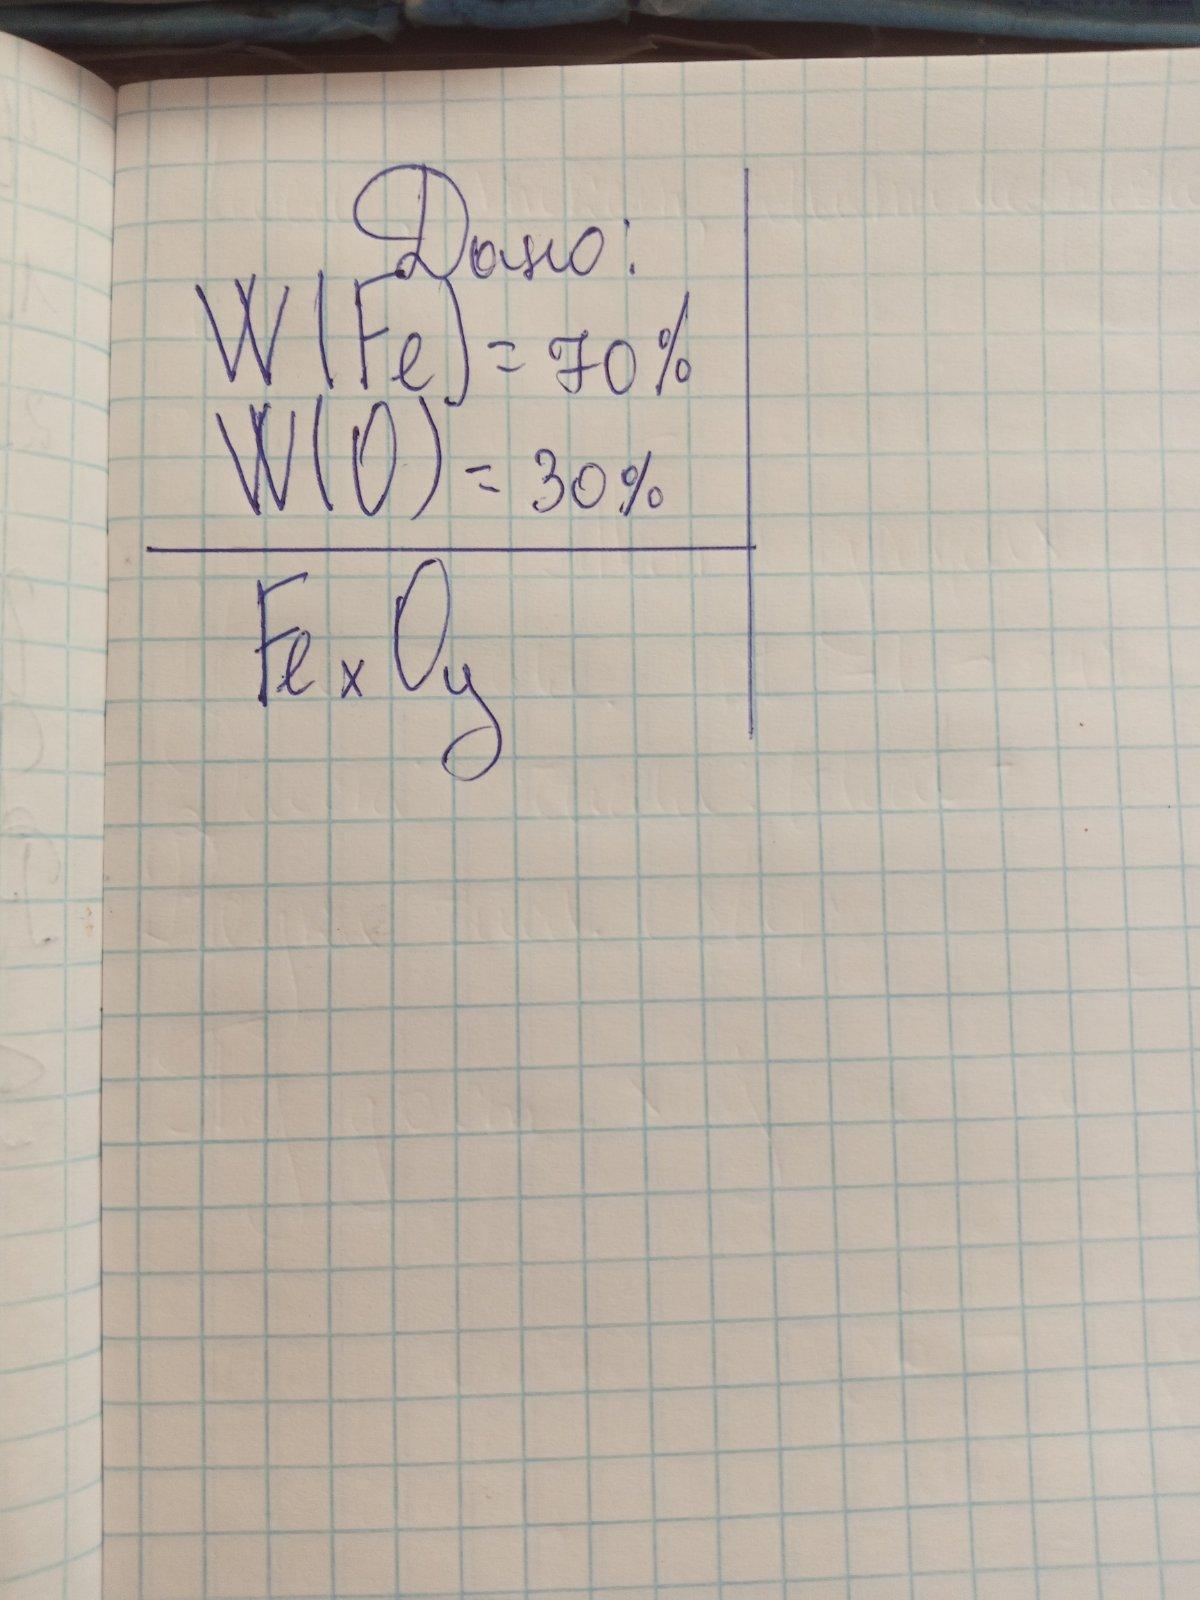 Дано:
W(Fe) = 70%
W(O) = 30%
FexOy